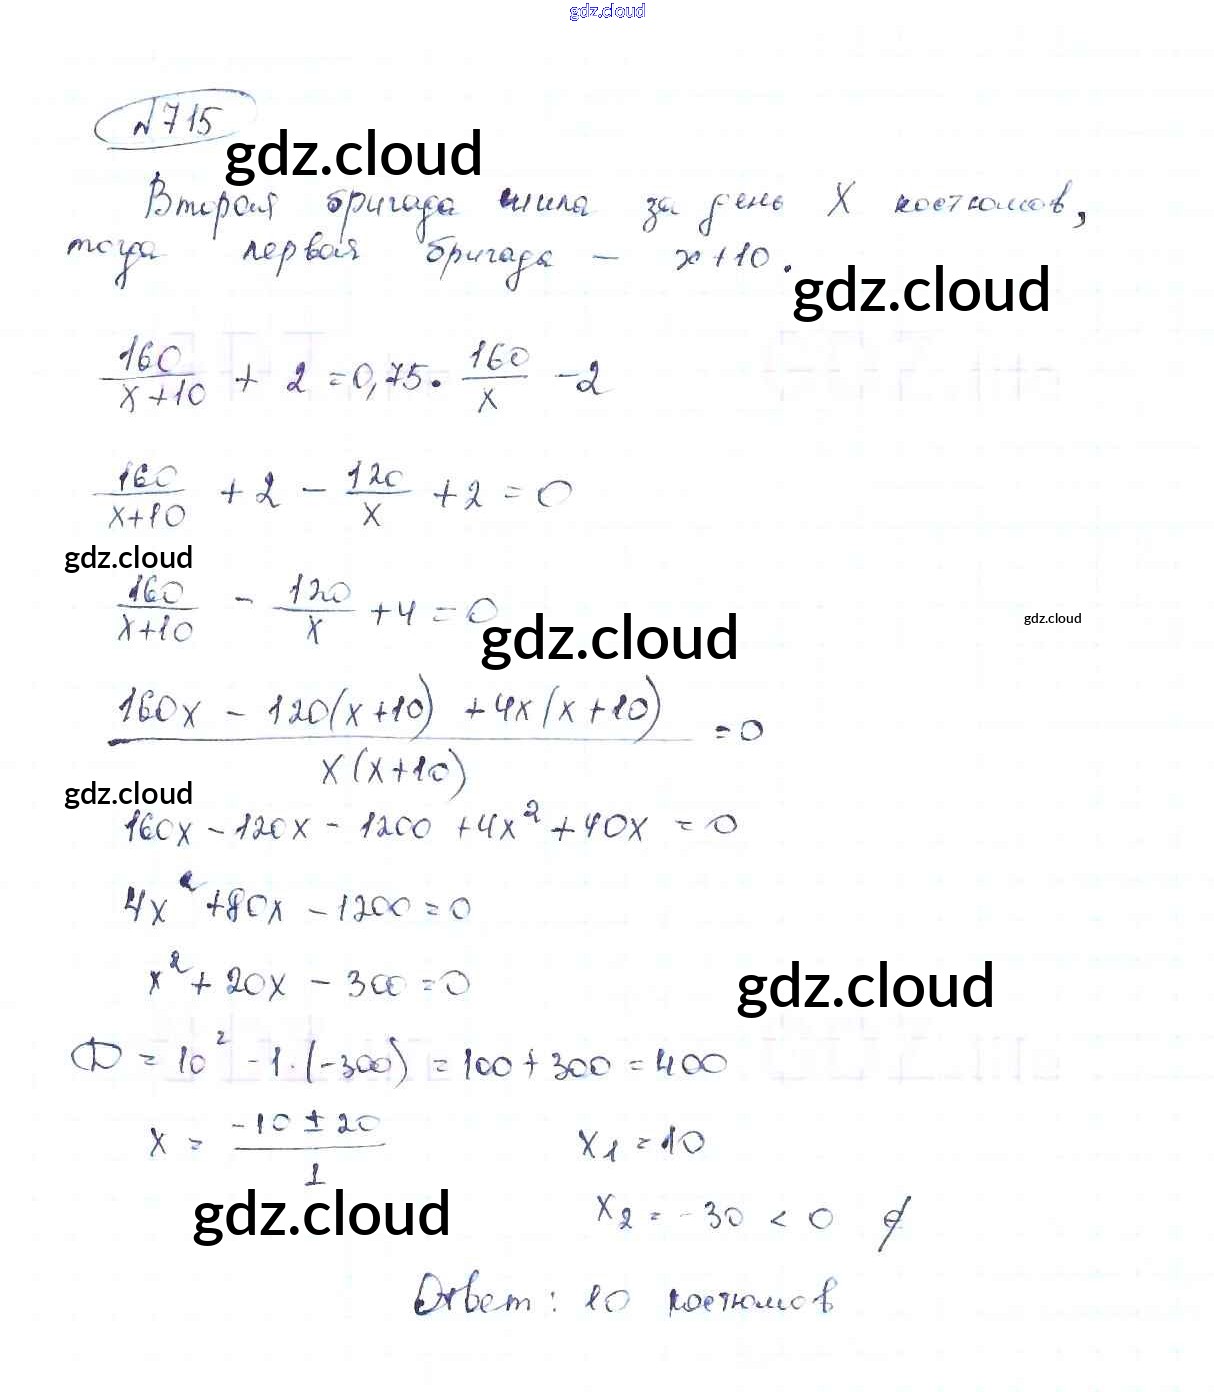 gdz.cloud
№715
gdz.cloud
Вторая бригада шила за день X костюмов,
тогда первая бригада – x+10.
gdz.cloud
160/(x+10) + 2 = 0,75 · 160/x - 2
160/(x+10) + 2 - 120/x + 2 = 0
gdz.cloud
160/(x+10) - 120/x + 4 = 0
gdz.cloud
gdz.cloud
(160x - 120(x+10) + 4x(x+10))/(x(x+10)) = 0
gdz.cloud
160x - 120x - 1200 + 4x² + 40x = 0
4x² + 80x - 1200 = 0
x² + 20x - 300 = 0
gdz.cloud
D = 10² - 1·(-300) = 100 + 300 = 400
x = (-10 ± 20)/1 x₁ = 10
gdz.cloud
x₂ = -30 < 0 ∅
Ответ: 10 костюмов